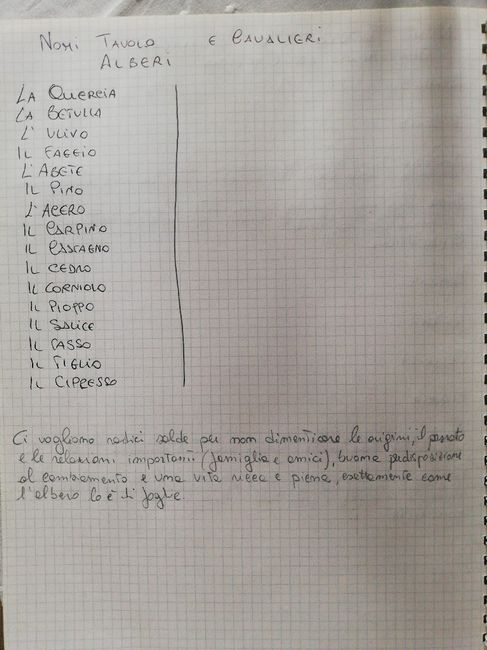 NOMI TAVOLO E CAVALIERI
ALBERI
LA QUERCIA
LA BETULLA
L'ULIVO
IL FAGGIO
L'ABETE
IL PINO
L'ACERO
IL CARPINO
IL CASTAGNO
IL CEDRO
IL CORNIOLO
IL PIOPPO
IL SALICE
IL TASSO
IL TIGLIO
IL CIPRESSO
Ci vogliono radici salde per non dimenticare le origini, il passato
e le relazioni importanti (famiglia e amici), buona predisposizione
al cambiamento e una vita ricca e piena, esattamente come
l'albero lo è di foglie.